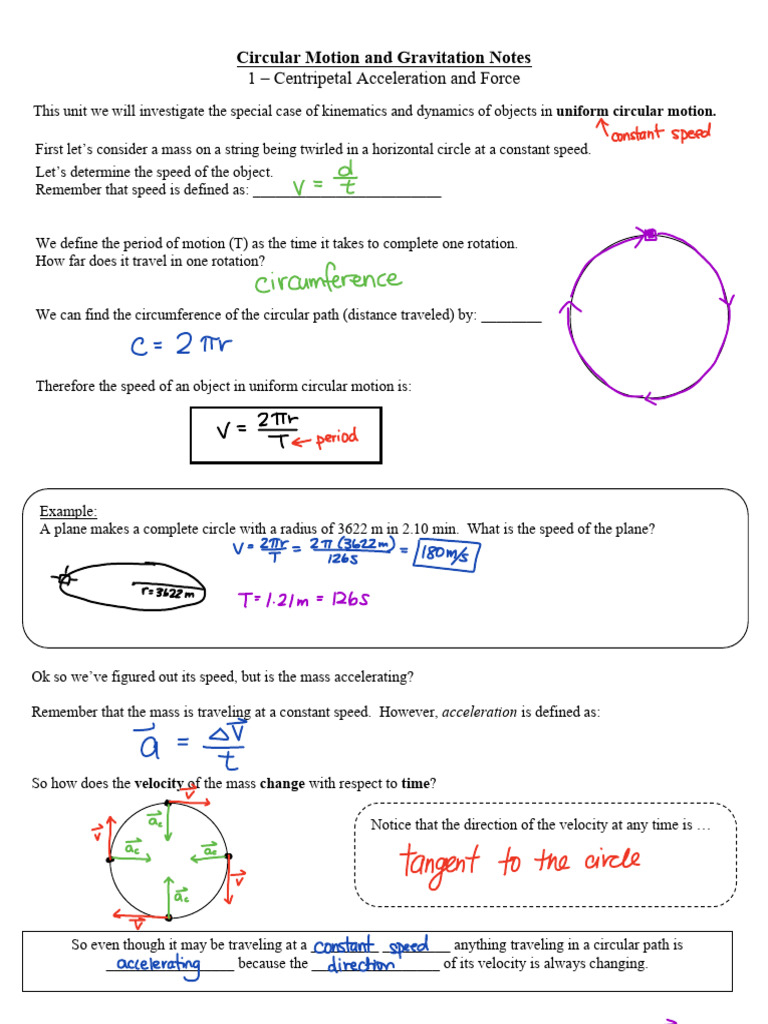 Circular Motion and Gravitation Notes
1 – Centripetal Acceleration and Force
This unit we will investigate the special case of kinematics and dynamics of objects in uniform circular motion.
constant speed
First let's consider a mass on a string being twirled in a horizontal circle at a constant speed.
Let's determine the speed of the object.
Remember that speed is defined as: v = d/t
We define the period of motion (T) as the time it takes to complete one rotation.
How far does it travel in one rotation?
circumference
We can find the circumference of the circular path (distance traveled) by: ________
C = 2πr
Therefore the speed of an object in uniform circular motion is:
V = 2πr/T ← period
Example:
A plane makes a complete circle with a radius of 3622 m in 2.10 min. What is the speed of the plane?
V = 2πr/T = 2π(3622m)/126s = 180m/s
r=3622m
T = 1.21m = 126s
Ok so we've figured out its speed, but is the mass accelerating?
Remember that the mass is traveling at a constant speed. However, acceleration is defined as:
a⃗ = ΔV⃗/t
So how does the velocity of the mass change with respect to time?
v⃗
v⃗ a⃗c
a⃗c a⃗c
a⃗c v⃗
v⃗
Notice that the direction of the velocity at any time is …
tangent to the circle
So even though it may be traveling at a constant speed anything traveling in a circular path is
accelerating because the direction of its velocity is always changing.